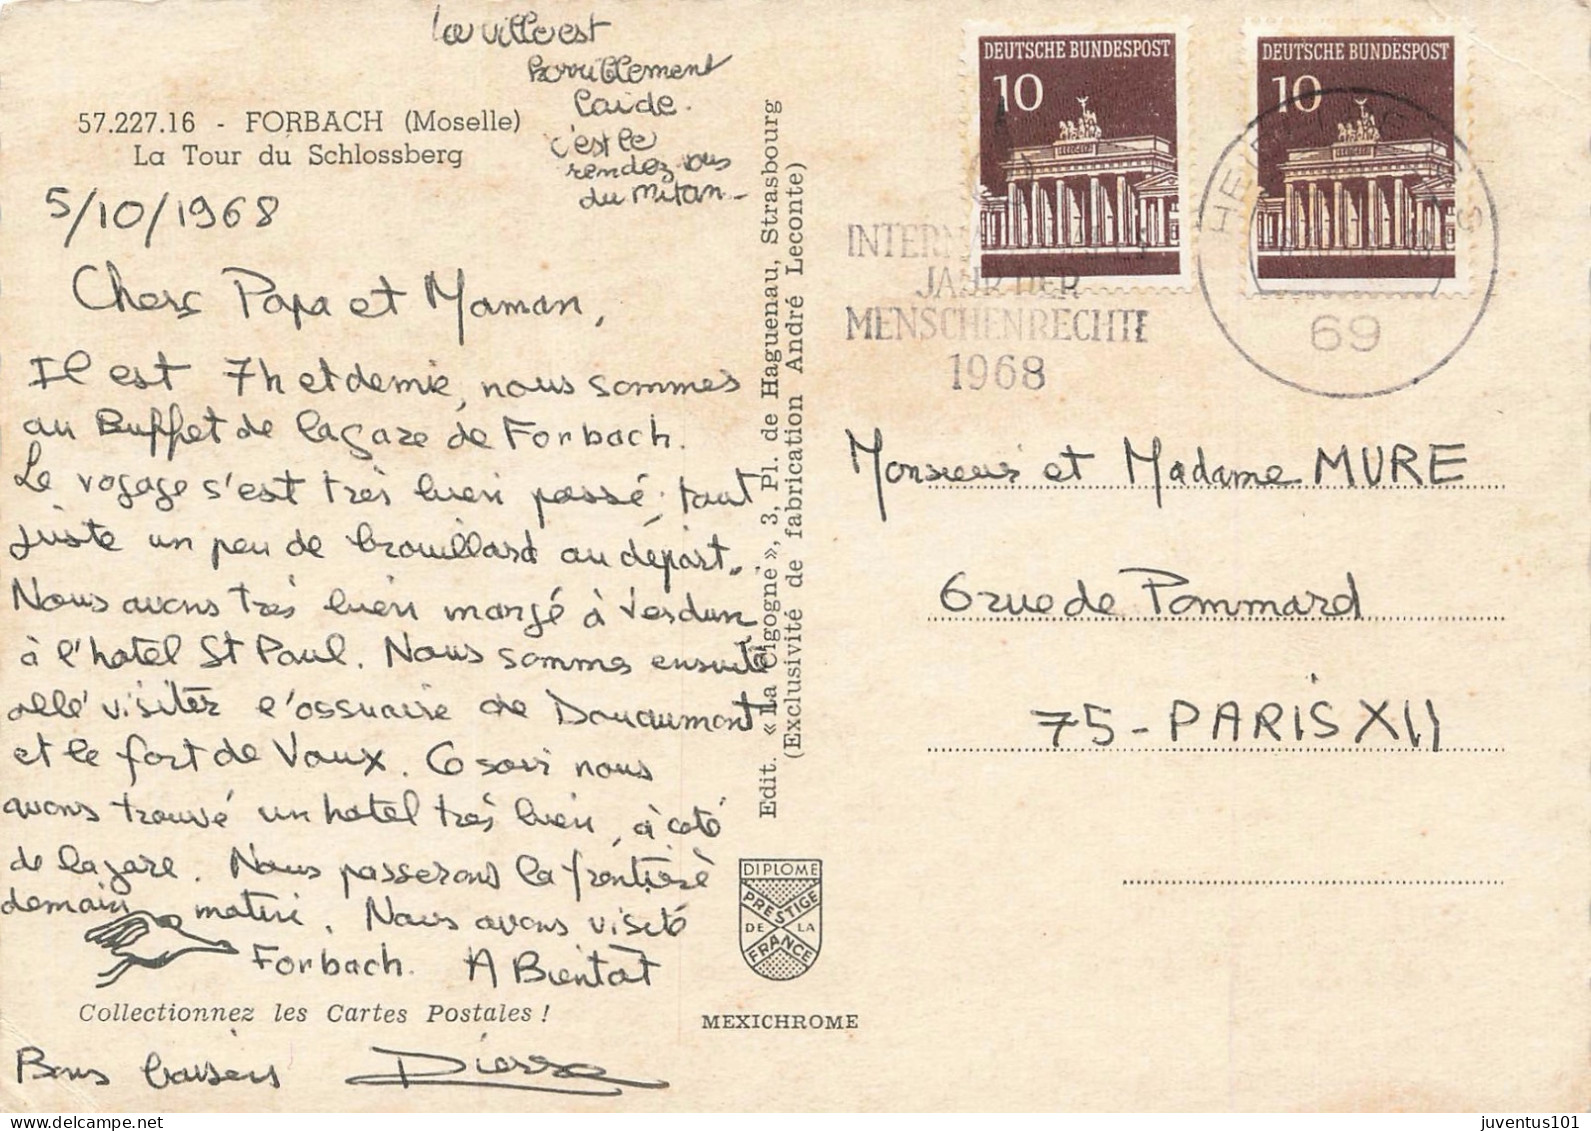 la ville est
horriblement
laide.
c'est le
rendez vous
du mitan -
57.227.16 - FORBACH (Moselle)
La Tour du Schlossberg
5/10/1968
Chers Papa et Maman,
Il est 7h et demie, nous sommes
au Buffet de la gare de Forbach.
Le voyage s'est très bien passé, tout
juste un peu de brouillard au départ..
Nous avons très bien mangé à Verdun
à l'hotel St Paul. Nous sommes ensuite
allé visiter l'ossuaire de Douaumont
et le fort de Vaux. Ce soir nous
avons trouvé un hotel très bien, à coté
de la gare. Nous passerons la frontière
demain matin. Nous avons visité
Forbach. A Bientôt
Collectionnez les Cartes Postales !
Bons baisers Pierre
Edit. « La Cigogne », 3, Pl. de Haguenau, Strasbourg
(Exclusivité de fabrication André Leconte)
DIPLOME
PRESTIGE
DE LA
FRANCE
MEXICHROME
DEUTSCHE BUNDESPOST
10
DEUTSCHE BUNDESPOST
10
INTERNA
JAHR DER
MENSCHENRECHTE
1968
69
Monsieur et Madame MURE
6 rue de Pommard
75 - PARIS XII
juventus101